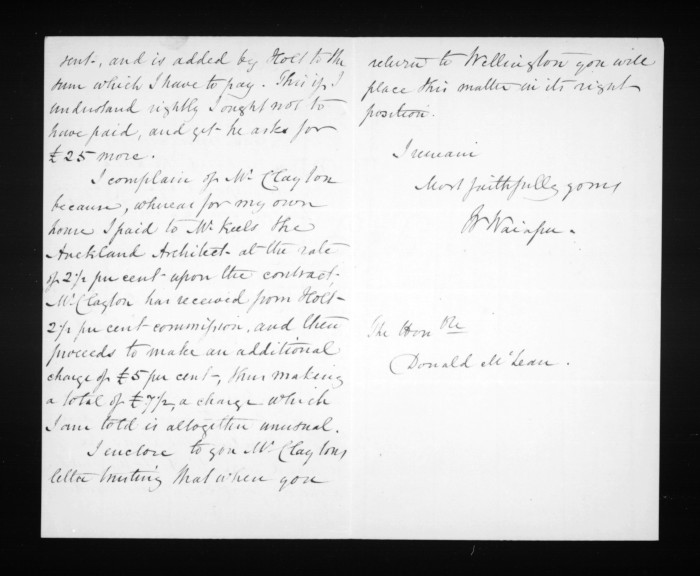 sent, and is added by Holt to the
sum which I have to pay. This if I
understand rightly I ought not to
have paid, and yet he asks for
£25 more.
I complain of Mr. Clayton
because, whereas for my own
home I paid to Mr. Keels the
Auckland Architect at the rate
of 2 1/2 per cent upon the contract,
Mr. Clayton has received from Holt
2 1/2 per cent commission, and then
proceeds to make an additional
charge of £5 per cent, thus making
a total of £7 1/2, a charge which
I am told is altogether unusual.
I enclose to you Mr. Claytons
letter trusting that when you
return to Wellington you will
place this matter in its right
position.
I remain
Most faithfully yours
W Waiapu.
The Honble
Donald McLean.